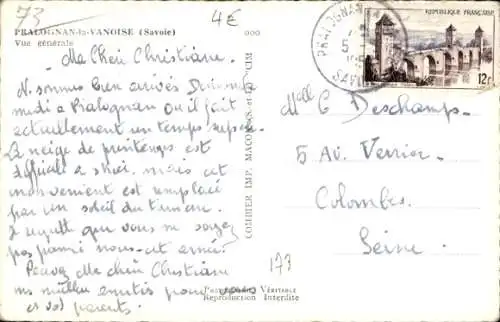 73
4€
PRALOGNAN-la-VANOISE (Savoie)
Vue générale
000
RÉPUBLIQUE FRANÇAISE
12F
PRALOGNAN
5
SAV
Ma Chère Christiane.
N. sommes bien arrivés Dimanche
midi à Pralognan où il fait
actuellement un temps superbe.
La neige de printemps est
difficile à skier, mais cet
inconvénient est remplacé
par un soleil du tonnerre.
Je regrette que vous ne soyez
pas parmi nous cet année.
Recevez Ma chère Christiane
ms meilleures amitiés pour vous
et vos parents.
COMBIER IMP. MACON (S.-et-L.) "CIM"
Melle C Deschamps.
5 Av. Verrier.
Colombes.
Seine.
173
Photographie Véritable
Reproduction Interdite